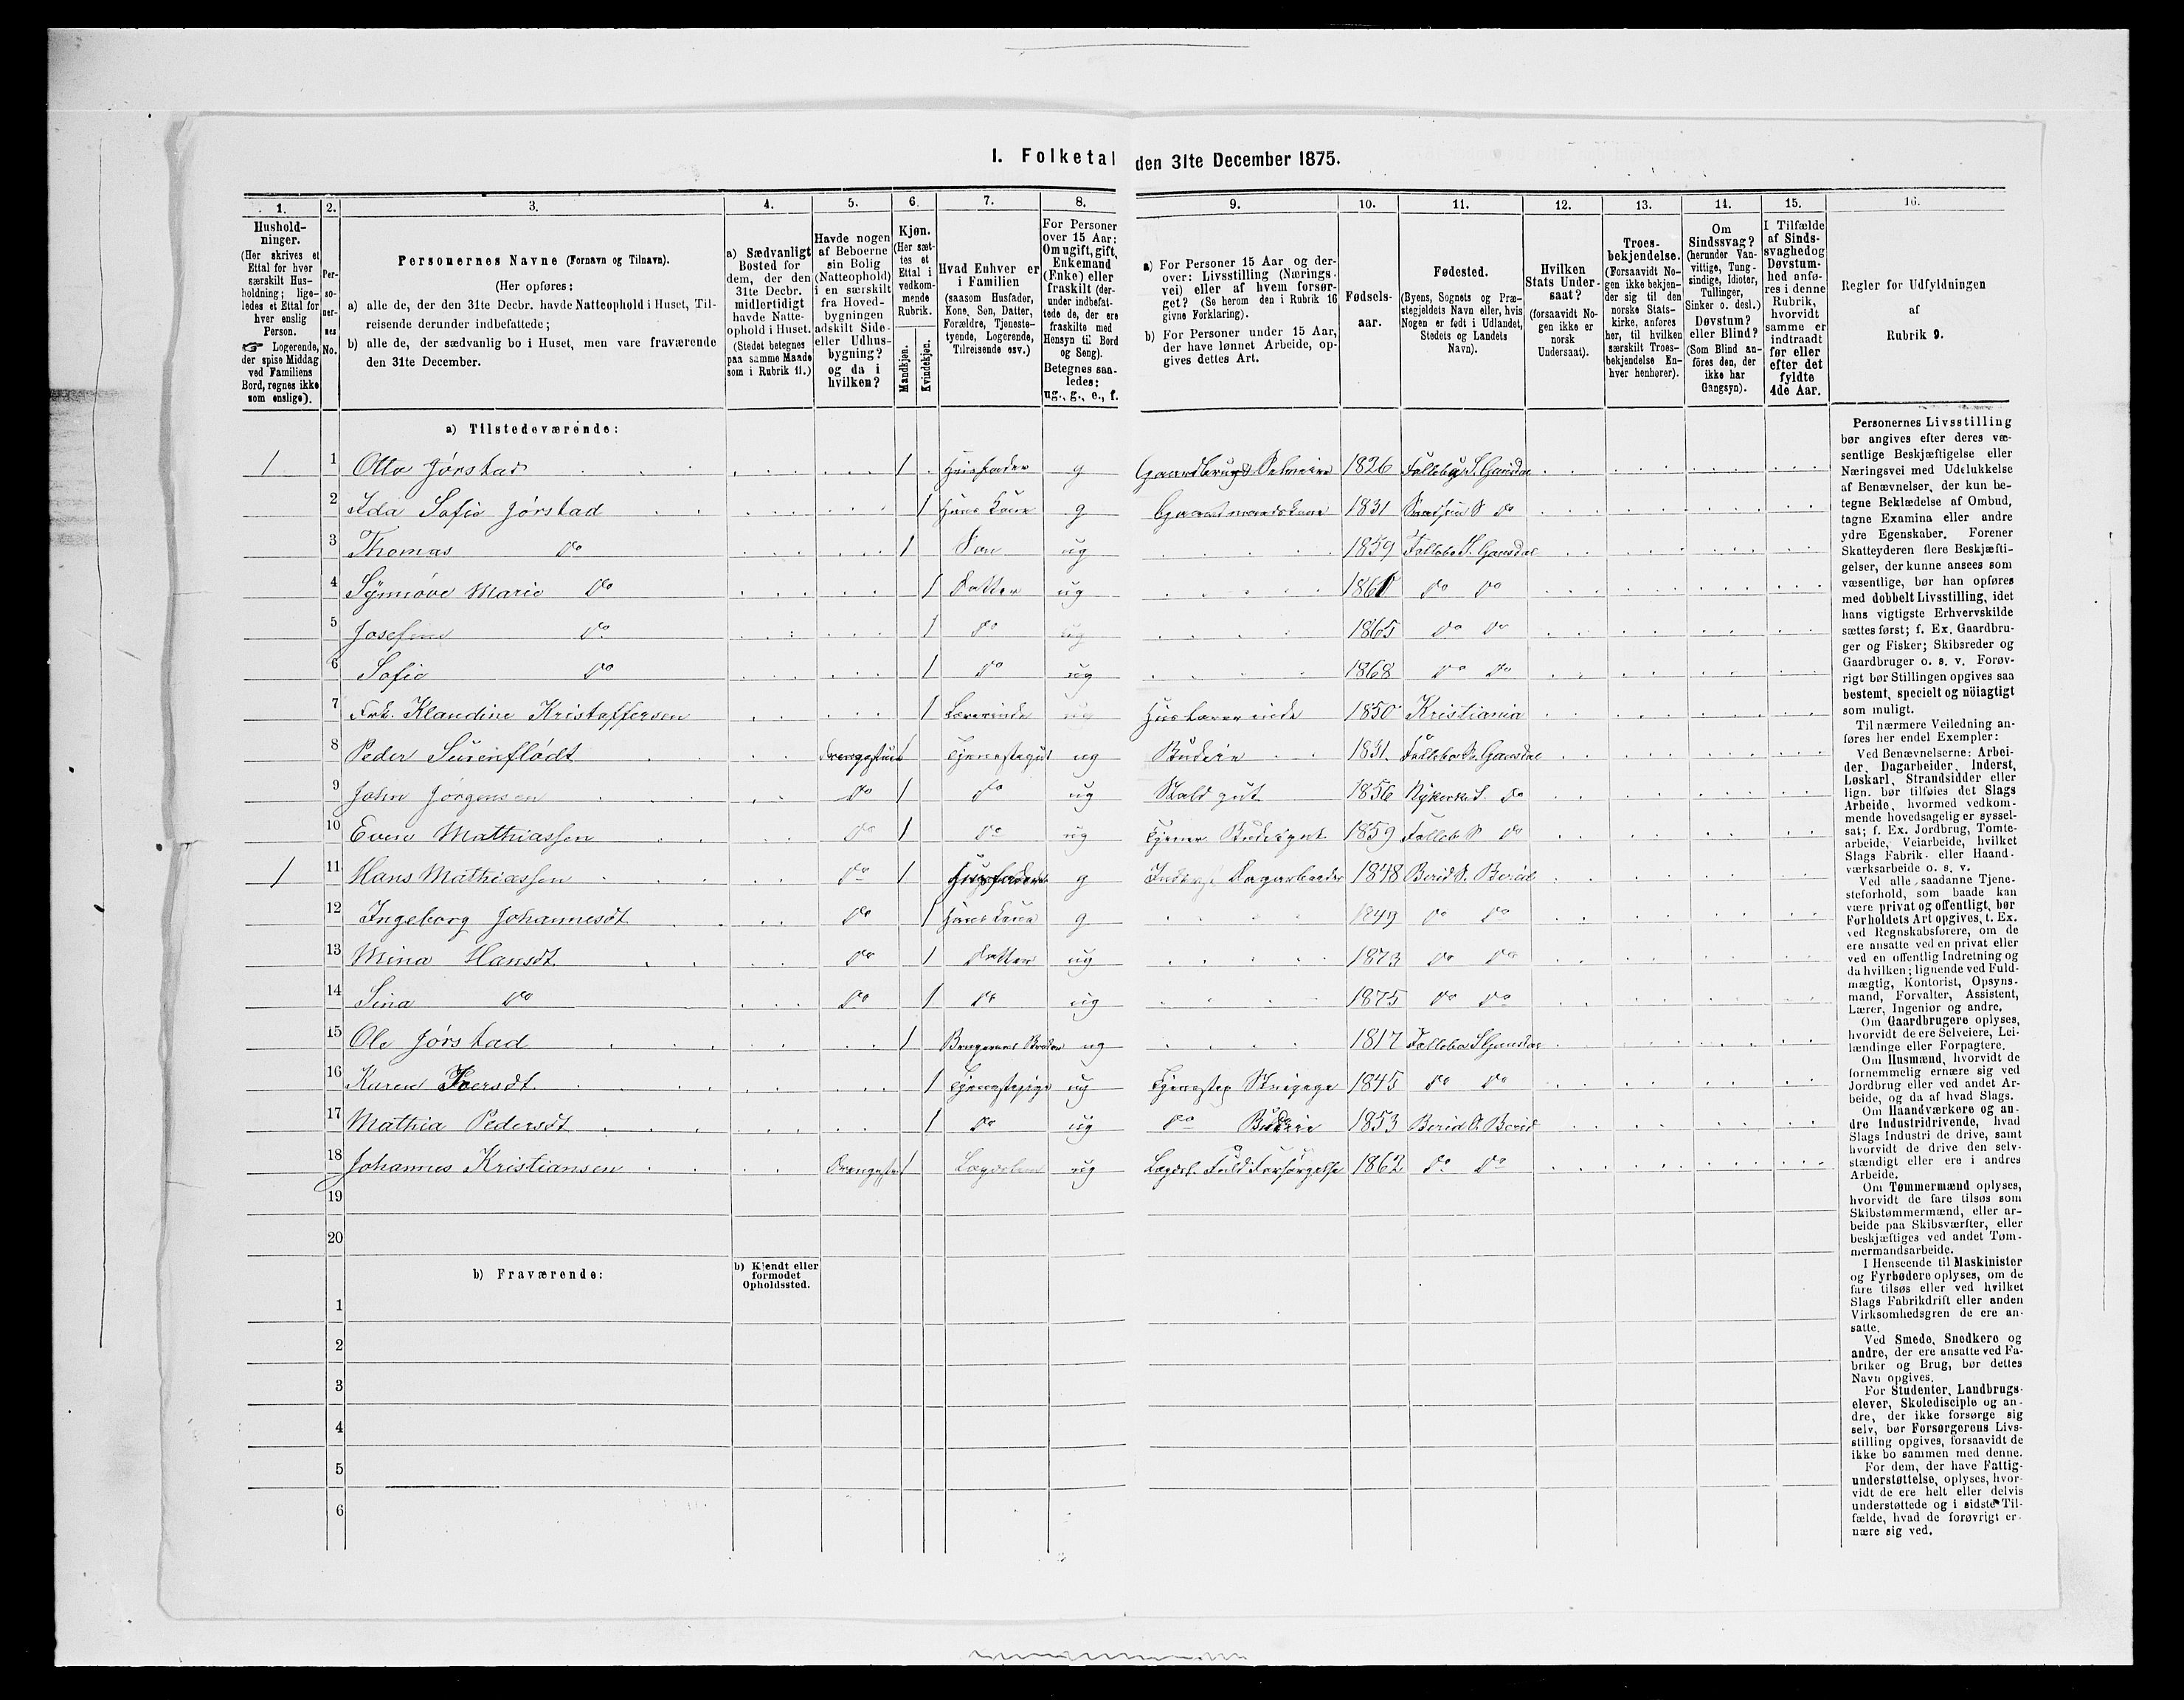 I. Folketal den 31te December 1875.
1. 2. 3. 4. 5. 6. 7. 8. 9. 10. 11. 12. 13. 14. 15. 16.
Husholdninger.
(Her skrives et
Ettal for hver
særskilt Hus-
holdning; lige-
ledes et Ettal for
hver enslig
Person.
☞ Logerende,
der spise Middag
ved Familiens
Bord, regnes ikke
som enslige).
Per-
so-
ner-
nes
No.
Personernes Navne (Fornavn og Tilnavn).
(Her opføres:
a) alle de, der den 31te Decbr. havde Natteophold i Huset, Til-
reisende derunder indbefattede;
b) alle de, der sædvanlig bo i Huset, men vare fraværende
den 31te December.
a) Sædvanligt
Bosted for
dem, der den
31te Decbr.
midlertidigt
havde Natte-
ophold i Huset.
(Stedet betegnes
paa samme Maade
som i Rubrik 11.)
Havde nogen
af Beboerne
sin Bolig
(Natteophold)
i en særskilt
fra Hoved-
bygningen
adskilt Side-
eller Udhus-
bygning?
og da i
hvilken?
Kjøn.
(Her sæt-
tes et
Ettal i
vedkom-
mende
Rubrik.
Mandkjøn.
Kvindekjøn.
Hvad Enhver er
i Familien
(saasom Husfader,
Kone, Søn, Datter,
Forældre, Tjeneste-
tyende, Logerende,
Tilreisende osv.)
For Personer
over 15 Aar:
Om ugift, gift,
Enkemand
(Enke) eller
fraskilt (der-
under indbefat-
tede de, der ere
fraskilte med
Hensyn til Bord
og Seng).
Betegnes saa-
ledes:
ug., g., e., f.
a) For Personer 15 Aar og der-
over: Livsstilling (Nærings-
vei) eller af hvem forsør-
get? (Se herom den i Rubrik 16
givne Forklaring).
b) For Personer under 15 Aar,
der have lønnet Arbeide, op-
gives dettes Art.
Fødsels-
aar.
Fødested.
(Byens, Sognets og Præ-
stegjeldets Navn eller, hvis
Nogen er født i Udlandet,
Stedets og Landets
Navn).
Hvilken
Stats Under-
saat?
(forsaavidt No-
gen ikke er
norsk
Undersaat).
Troes-
bekjendelse.
(Forsaavidt No-
gen ikke bekjen-
der sig til den
norske Stats-
kirke, anføres
her, til hvilken
særskilt Troes-
bekjendelse En-
hver henhører).
Om
Sindssvag?
(herunder Van-
vittige, Tung-
sindige, Idioter,
Tullinger,
Sinker o. desl.)
Døvstum?
eller Blind?
(Som Blind an-
föres den, der
ikke har
Gangsyn).
I Tilfælde
af Sinds-
svaghed og
Døvstum-
hed anfø-
res i denne
Rubrik,
hvorvidt
samme er
indtraadt
før eller
efter det
fyldte
4de Aar.
Regler for Udfyldningen
af
Rubrik 9.
a) Tilstedeværende:
1 1 Otto Jørstad 1 Husfader g Gaardbruger Selveier 1826 Føllebog S. Gausdal
2 Ida Sofie Jørstad 1 Huus Kone g Gaardmandskone 1831 do
3 Thomas do 1 Søn ug 1859 Føllebo S. Gausdal
4 Synnöve Marie do 1 Datter ug 1861 do do
5 Josefine do 1 do ug 1865 do do
6 Sofie do 1 do ug 1868 do do
7 Frk. Klandine Kristoffersen 1 Lærerinde ug Huslærerinde 1850 Kristiania
8 Peder Surinflødt Drengestuen 1 Tjenestegut ug Budeie 1831. Føllebo S. Gausdal
9 John Jörgensen do 1 do ug Stald gut 1856 Nykirke S. do
10 Even Mathiassen do 1 do ug Tjener 1859 Føllebo S do
1 11 Hans Mathiassen do 1 Husfader g Inderst Dagarbeider 1848 Berid S. Berid
12 Ingeborg Johannesdt do 1 Huus Kone g 1849 do do
13 Mina Hansdt do 1 Datter ug 1873 do do
14 Sina do do 1 do ug 1875 do do
15 Ole Jørstad 1 Brugerens Broder ug 1817 Føllebo S Gausdal
16 Karen Iversdt 1 Tjenestepige ug 1845 do do
17 Mathia Pedersdt 1 do ug do Budeie 1853 Berid S. Berid
18 Johannes Kristiansen Drengestue 1 Lægdslem ug Lægdsl. Fuld Forsørgelse 1862 do do
19
20
b) Fraværende:
b) Kjendt eller
formodet
Opholdssted.
1
2
3
4
5
6
Personernes Livsstilling
bør angives efter deres væ-
sentlige Beskjæftigelse eller
Næringsvei med Udelukkelse
af Benævnelser, der kun be-
tegne Beklædelse af Ombud,
tagne Examina eller andre
ydre Egenskaber. Forener
Skatteyderen flere Beskjæfti-
gelser, der kunne ansees som
væsentlige, bør han opføres
med dobbelt Livsstilling, idet
hans vigtigste Erhvervskilde
sættes først; f. Ex. Gaardbru-
ger og Fisker; Skibsreder og
Gaardbruger o. s. v. Forøv-
rigt bør Stillingen opgives saa
bestemt, specielt og nöiagtigt
som muligt.
Til nærmere Veiledning an-
føres her endel Exempler:
Ved Benævnelserne: Arbei-
der, Dagarbeider, Inderst,
Løskarl, Strandsidder eller
lign. bør tilføies det Slags
Arbeide, hvormed vedkom-
mende hovedsagelig er syssel-
sat; f. Ex. Jordbrug, Tomte-
arbeide, Veiarbeide, hvilket
Slags Fabrik- eller Haand-
værksarbeide o. s. v.
Ved alle saadanne Tjene-
steforhold, som baade kan
være privat og offentligt, bør
Forholdets Art opgives, t. Ex.
ved Regnskabsførere, om de
ere ansatte ved en privat eller
ved en offentlig Indretning og
da hvilken; lignende ved Fuld-
mægtig, Kontorist, Opsyns-
mand, Forvalter, Assistent,
Lærer, Ingeniør og andre.
Om Gaardbrugere oplyses,
hvorvidt de ere Selveiere, Lei-
lændinge eller Forpagtere.
Om Husmænd, hvorvidt de
fornemmelig ernære sig ved
Jordbrug eller ved andet Ar-
beide, og da af hvad Slags.
Om Haandværkere og an-
dre Industridrivende, hvad
Slags Industri de drive, samt
hvorvidt de drive den selv-
stændigt eller ere i andres
Arbeide.
Om Tømmermænd oplyses,
hvorvidt de fare tilsøs som
Skibstømmermænd, eller ar-
beide paa Skibsværfter, eller
beskjæftiges ved andet Tøm-
mermandsarbeide.
I Henseende til Maskinister
og Fyrbødere oplyses, om de
fare tilsøs eller ved hvilket
Slags Fabrikdrift eller anden
Virksomhedsgren de ere an-
satte.
Ved Smede, Snedkere og
andre, der ere ansatte ved Fa-
briker og Brug, bør dettes
Navn opgives.
For Studenter, Landbrugs-
elever, Skoledisciple og an-
dre, der ikke forsørge sig
selv, bør Forsørgerens Livs-
stilling opgives, forsaavidt de
ikke bo sammen med denne.
For dem, der have Fattig-
understøttelse, oplyses, hvor-
vidt de ere helt eller delvis
understøttede og i sidste Til-
fælde, hvad de forøvrigt er-
nære sig ved.